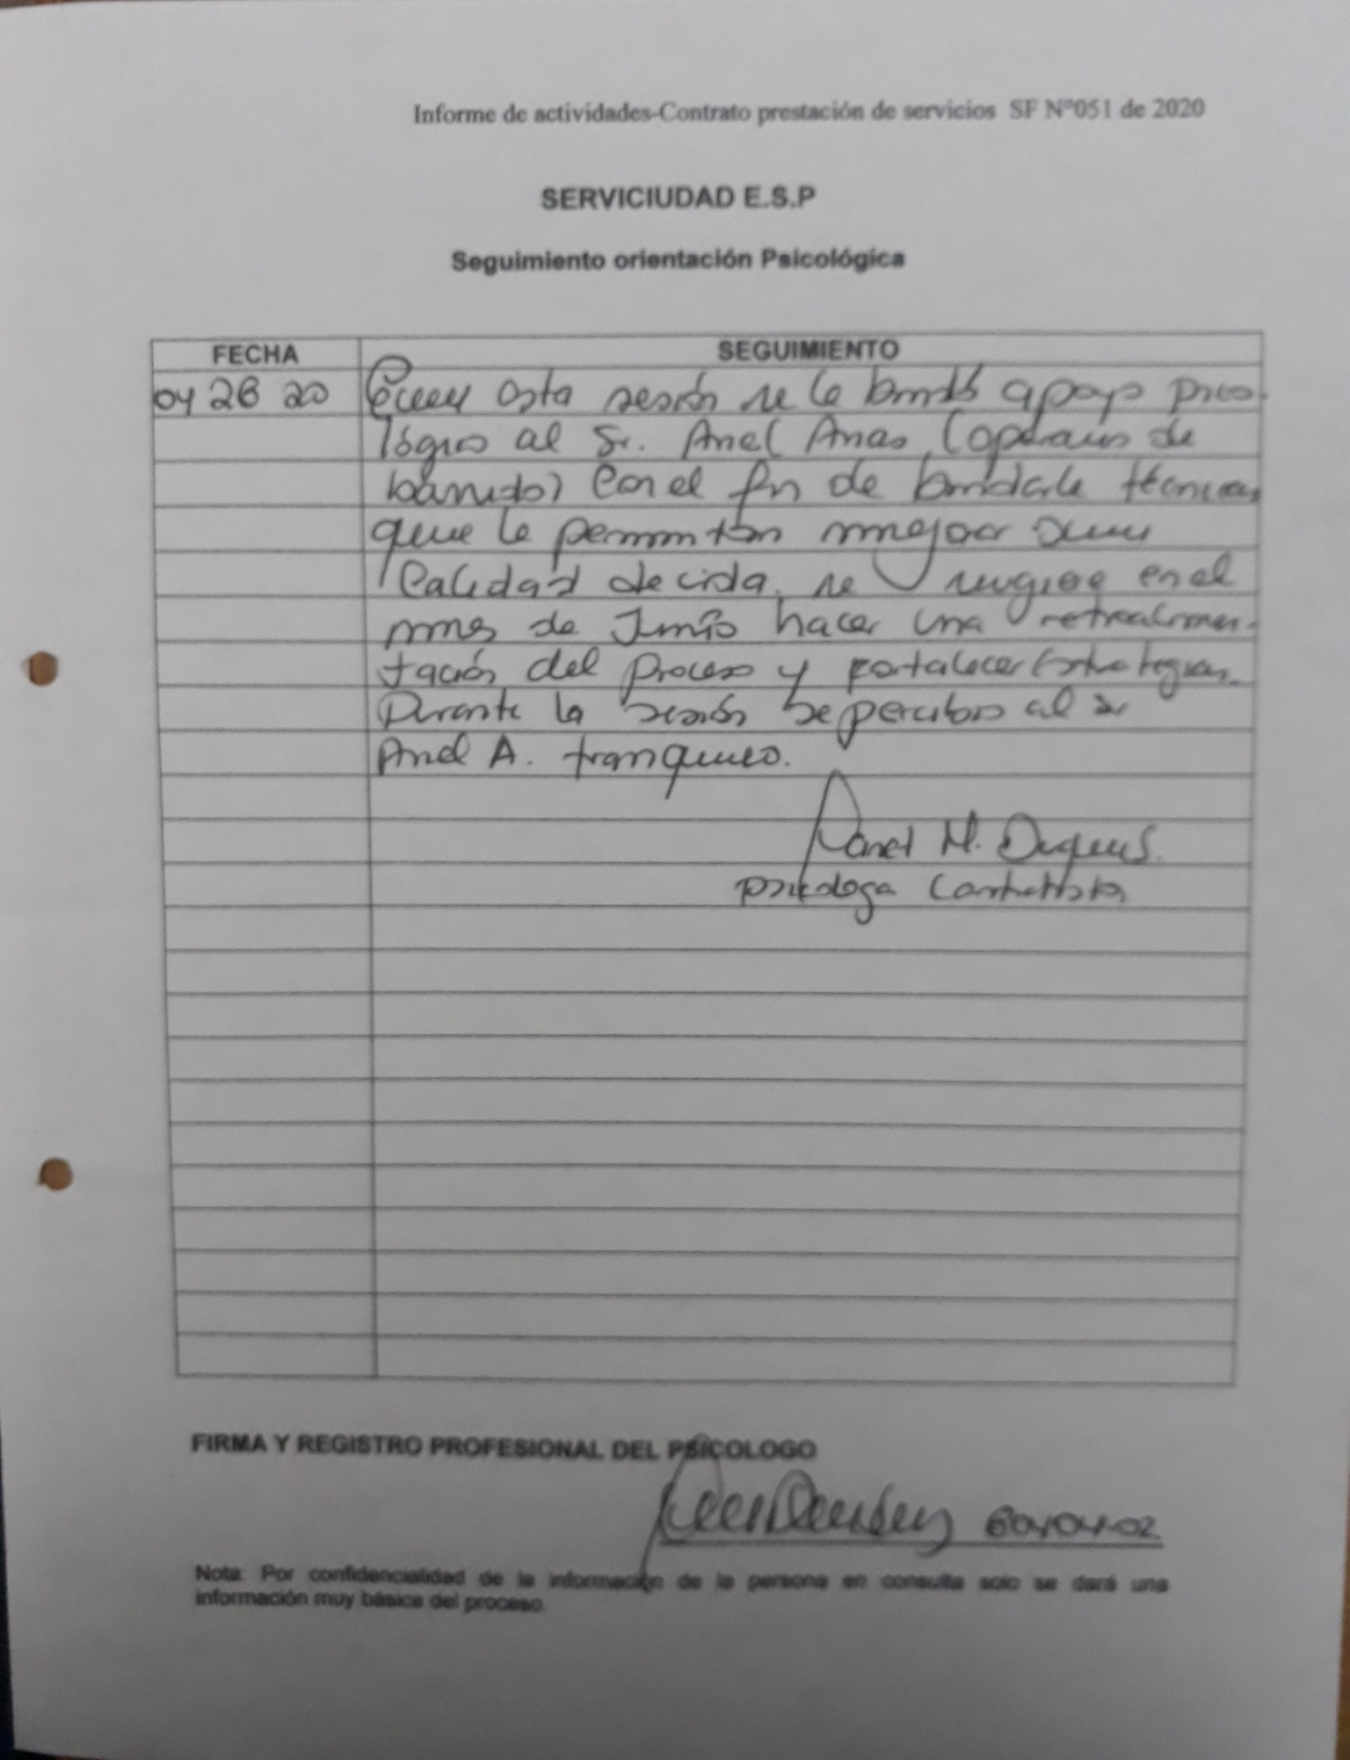 Informe de actividades-Contrato prestación de servicios SF N°051 de 2020
SERVICIUDAD E.S.P
Seguimiento orientación Psicológica
FECHA SEGUIMIENTO
04 28 20 esta sesión se le brindó apoyo psico
lógico al Sr. Arias (operario de
barrido) con el fin de brindarle técnicas
que le permitan mejorar su
calidad de vida. se sugiere en el
mes de Junio hacer una retroalimen-
tación del proceso y fortalecer estrategias.
Durante la sesión se percibió al Sr
A. tranquilo.
M.
psicologa contratista
FIRMA Y REGISTRO PROFESIONAL DEL PSICOLOGO
Nota: Por confidencialidad de la información de la persona en consulta solo se dará una
información muy básica del proceso.